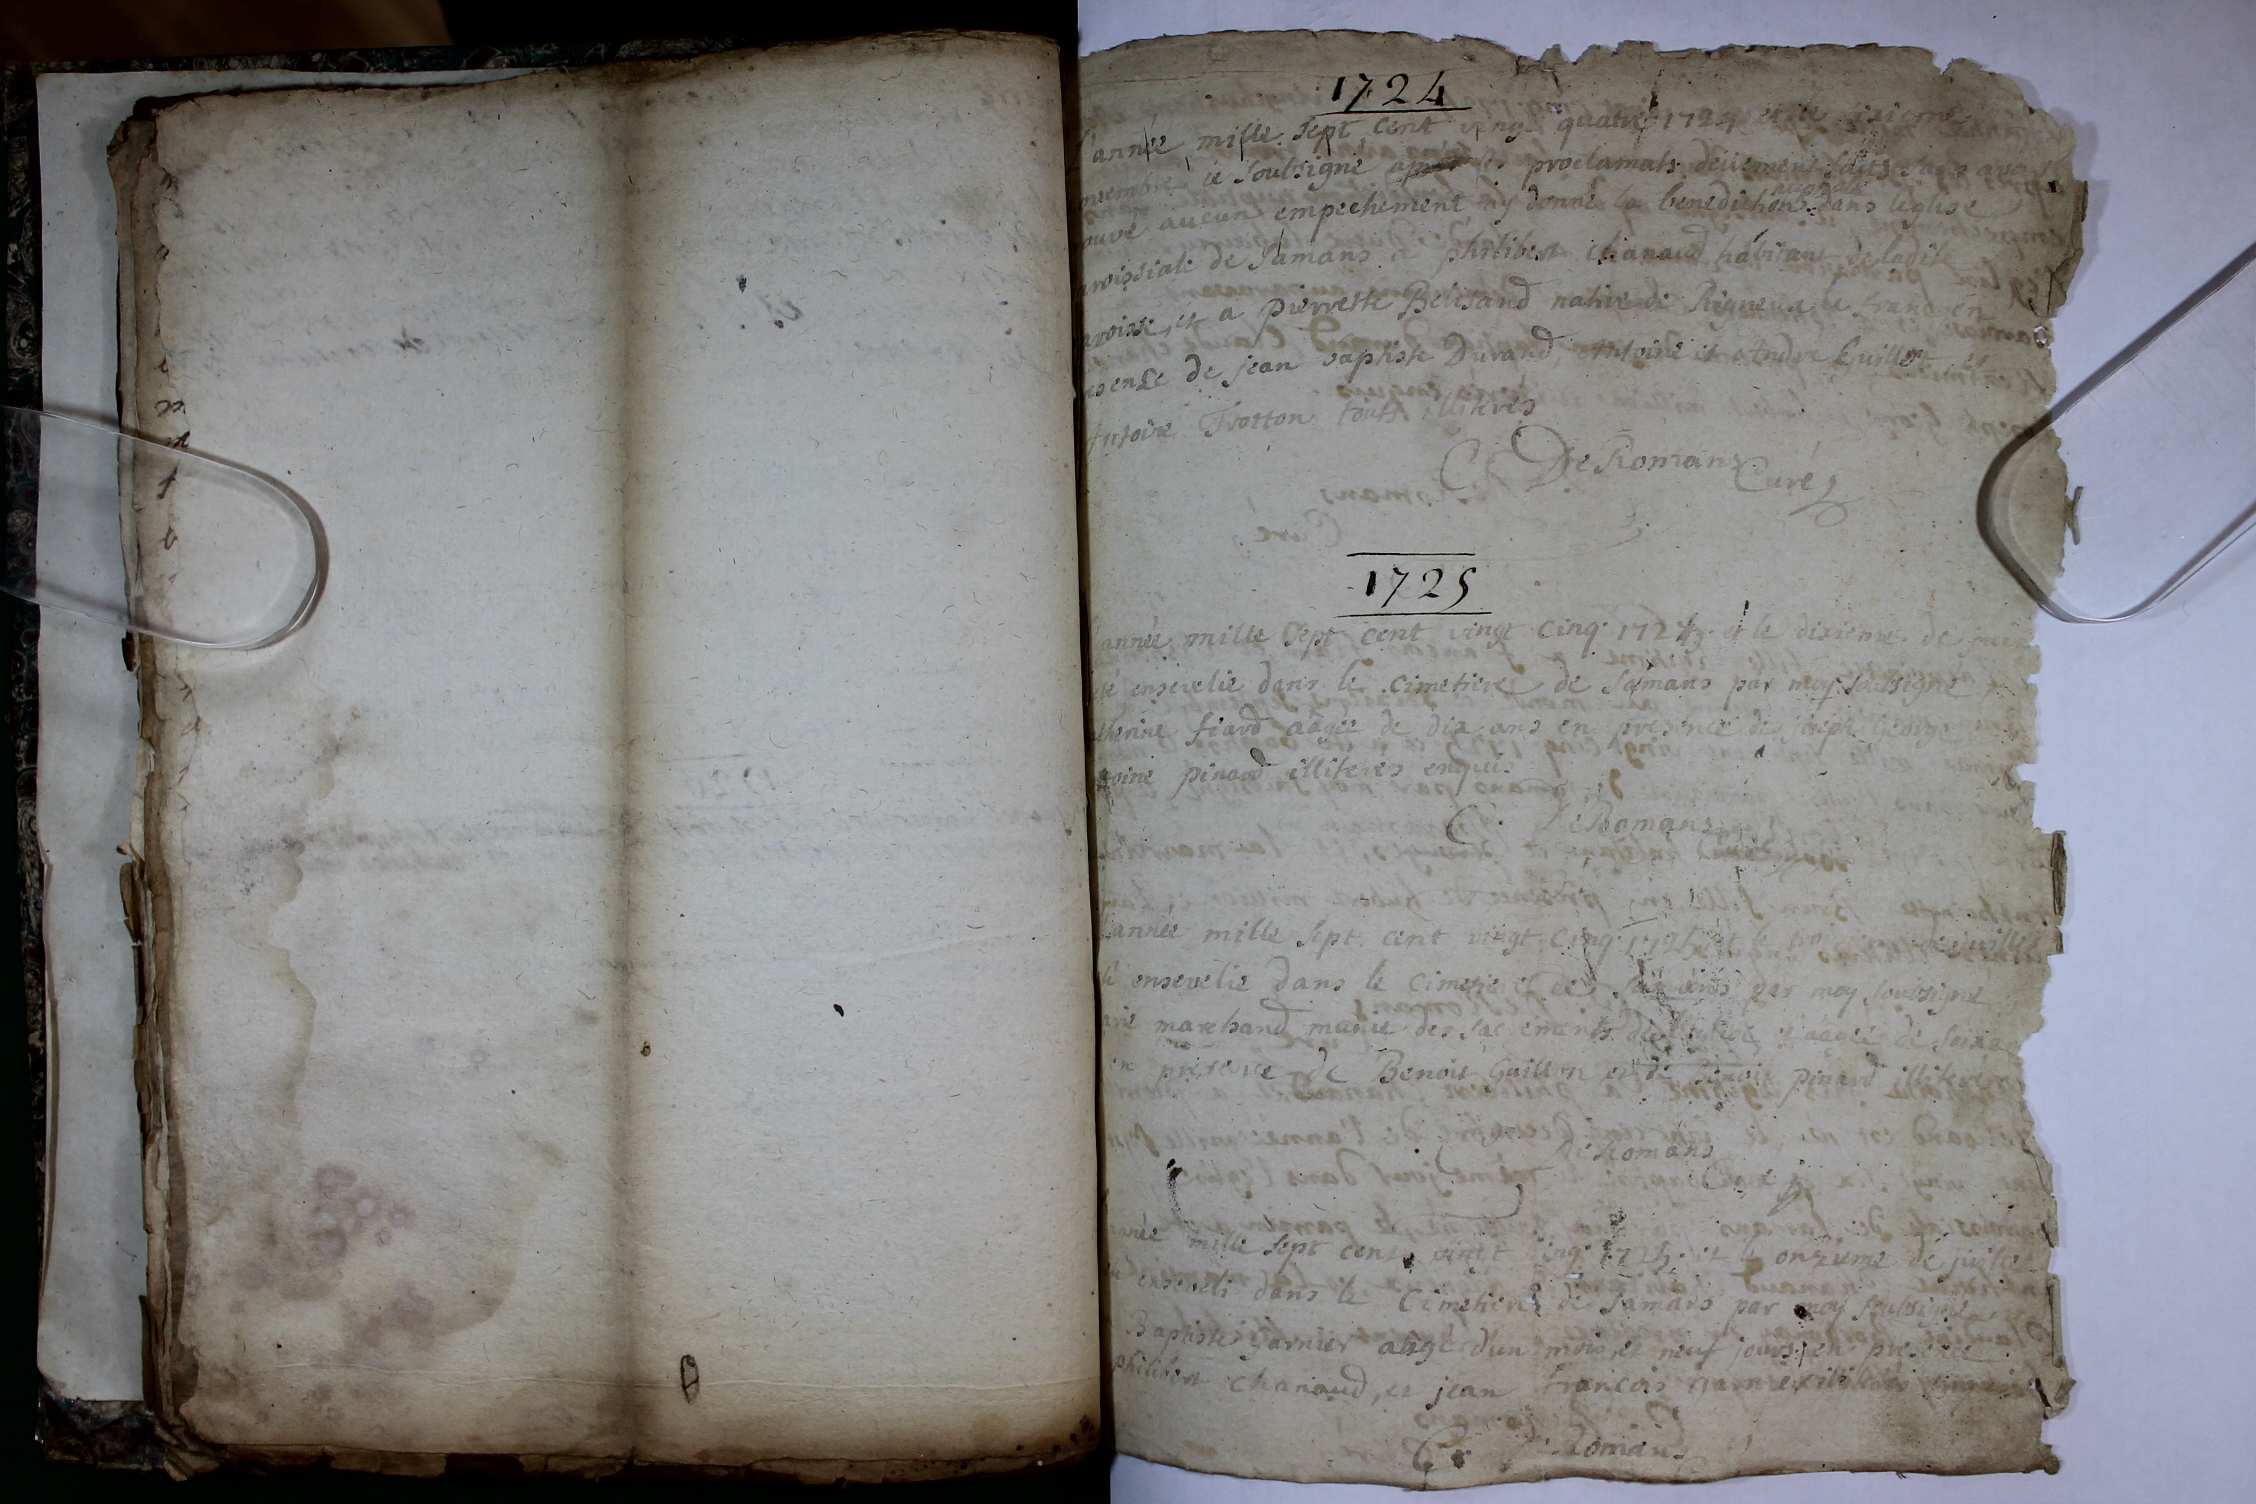 1724
L'année mille sept cent vingt quatre 1724 et le
novembre ie soubsigné apres les proclamats deüement faits sans avoir
ouvé aucun empechement ay donné la benediction nuptiale dans leglise
aroissiale de Samans a philibert chanaud habitant de ladite
aroisse, et a pierrette Belisand native de Rigneux le franc en
esence de jean baptiste Durand, Antoine et Andre Guillot et
Antoine Trotton touts illiteres
C De Romans
Curé
1725
année mille sept cent vingt cinq 1725 et le dixieme de jui
té ensevelie dans le cimetiere de Samans par moy soubsigné
therine fiard aagée de dix ans en presence de joseph George
toine pinard illiteres enquis
C. DeRomans
année mille sept cent vingt cinq 1725 et le troisieme de juillet
té ensevelie dans le cimetiere de Samans par moy soubsigné
marchand munie des sacrements de l'eglise aagée de soixa
en presence de Benoit Guillon et de Benoit pinard illiteres
De Romans
Curé
née mille sept cent vingt cinq 1725 et le onzieme de juillet
enseveli dans le Cimetiere de Samans par moy soubsigné
Baptiste garnier aagé d'un mois et neuf jours en presence
philibert chanaud, et jean françois garnier illiteres enquis
C. DeRomans